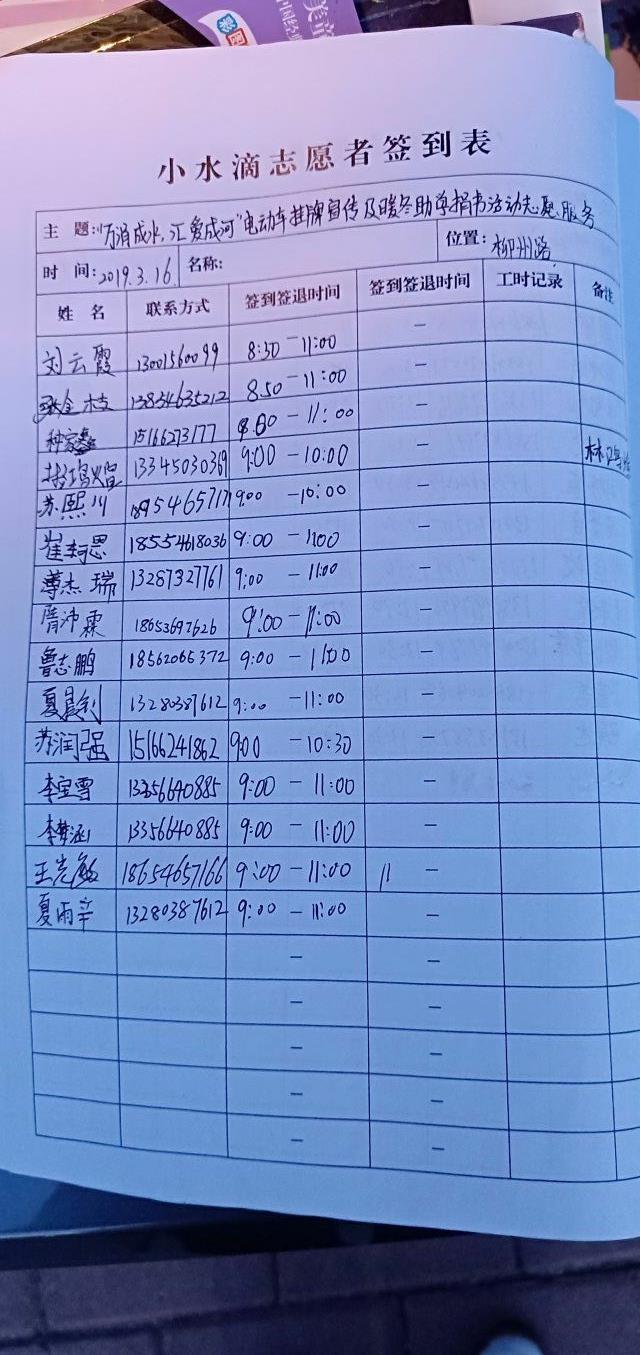 小水滴志愿者签到表
主 题:"万涓成水,汇爱成河"电动车挂牌宣传及暖冬助学捐书活动志愿服务
时 间:2019.3.16 名称: 位置:柳州路
姓 名 联系方式 签到签退时间 签到签退时间 工时记录 备注
刘云霞 13001560099 8:30-11:00 -
金枝 13834635212 8:50-11:00 -
种家鑫 15166273177 -11:00 -
13345030369 9:00-10:00 -
苏熙川 9:00-10:00 -
崔珂恩 18554618036 9:00-1100 -
杰瑞 13287327761 9:00-11:00 -
隋沛霖 18653697626 9:00-11:00 -
鲁志鹏 18562065372 9:00-11:00 -
夏晨钊 13280387612 9:00-11:00 -
苏润强 15166241862 900-10:30 -
李宝雪 13356640885 9:00-11:00 -
李梦涵 13356640885 9:00-11:00 -
王克敏 18654657166 9:00-11:00 11 -
夏雨辛 13280387612 9:00-11:00 -
- -
- -
- -
- -
- -